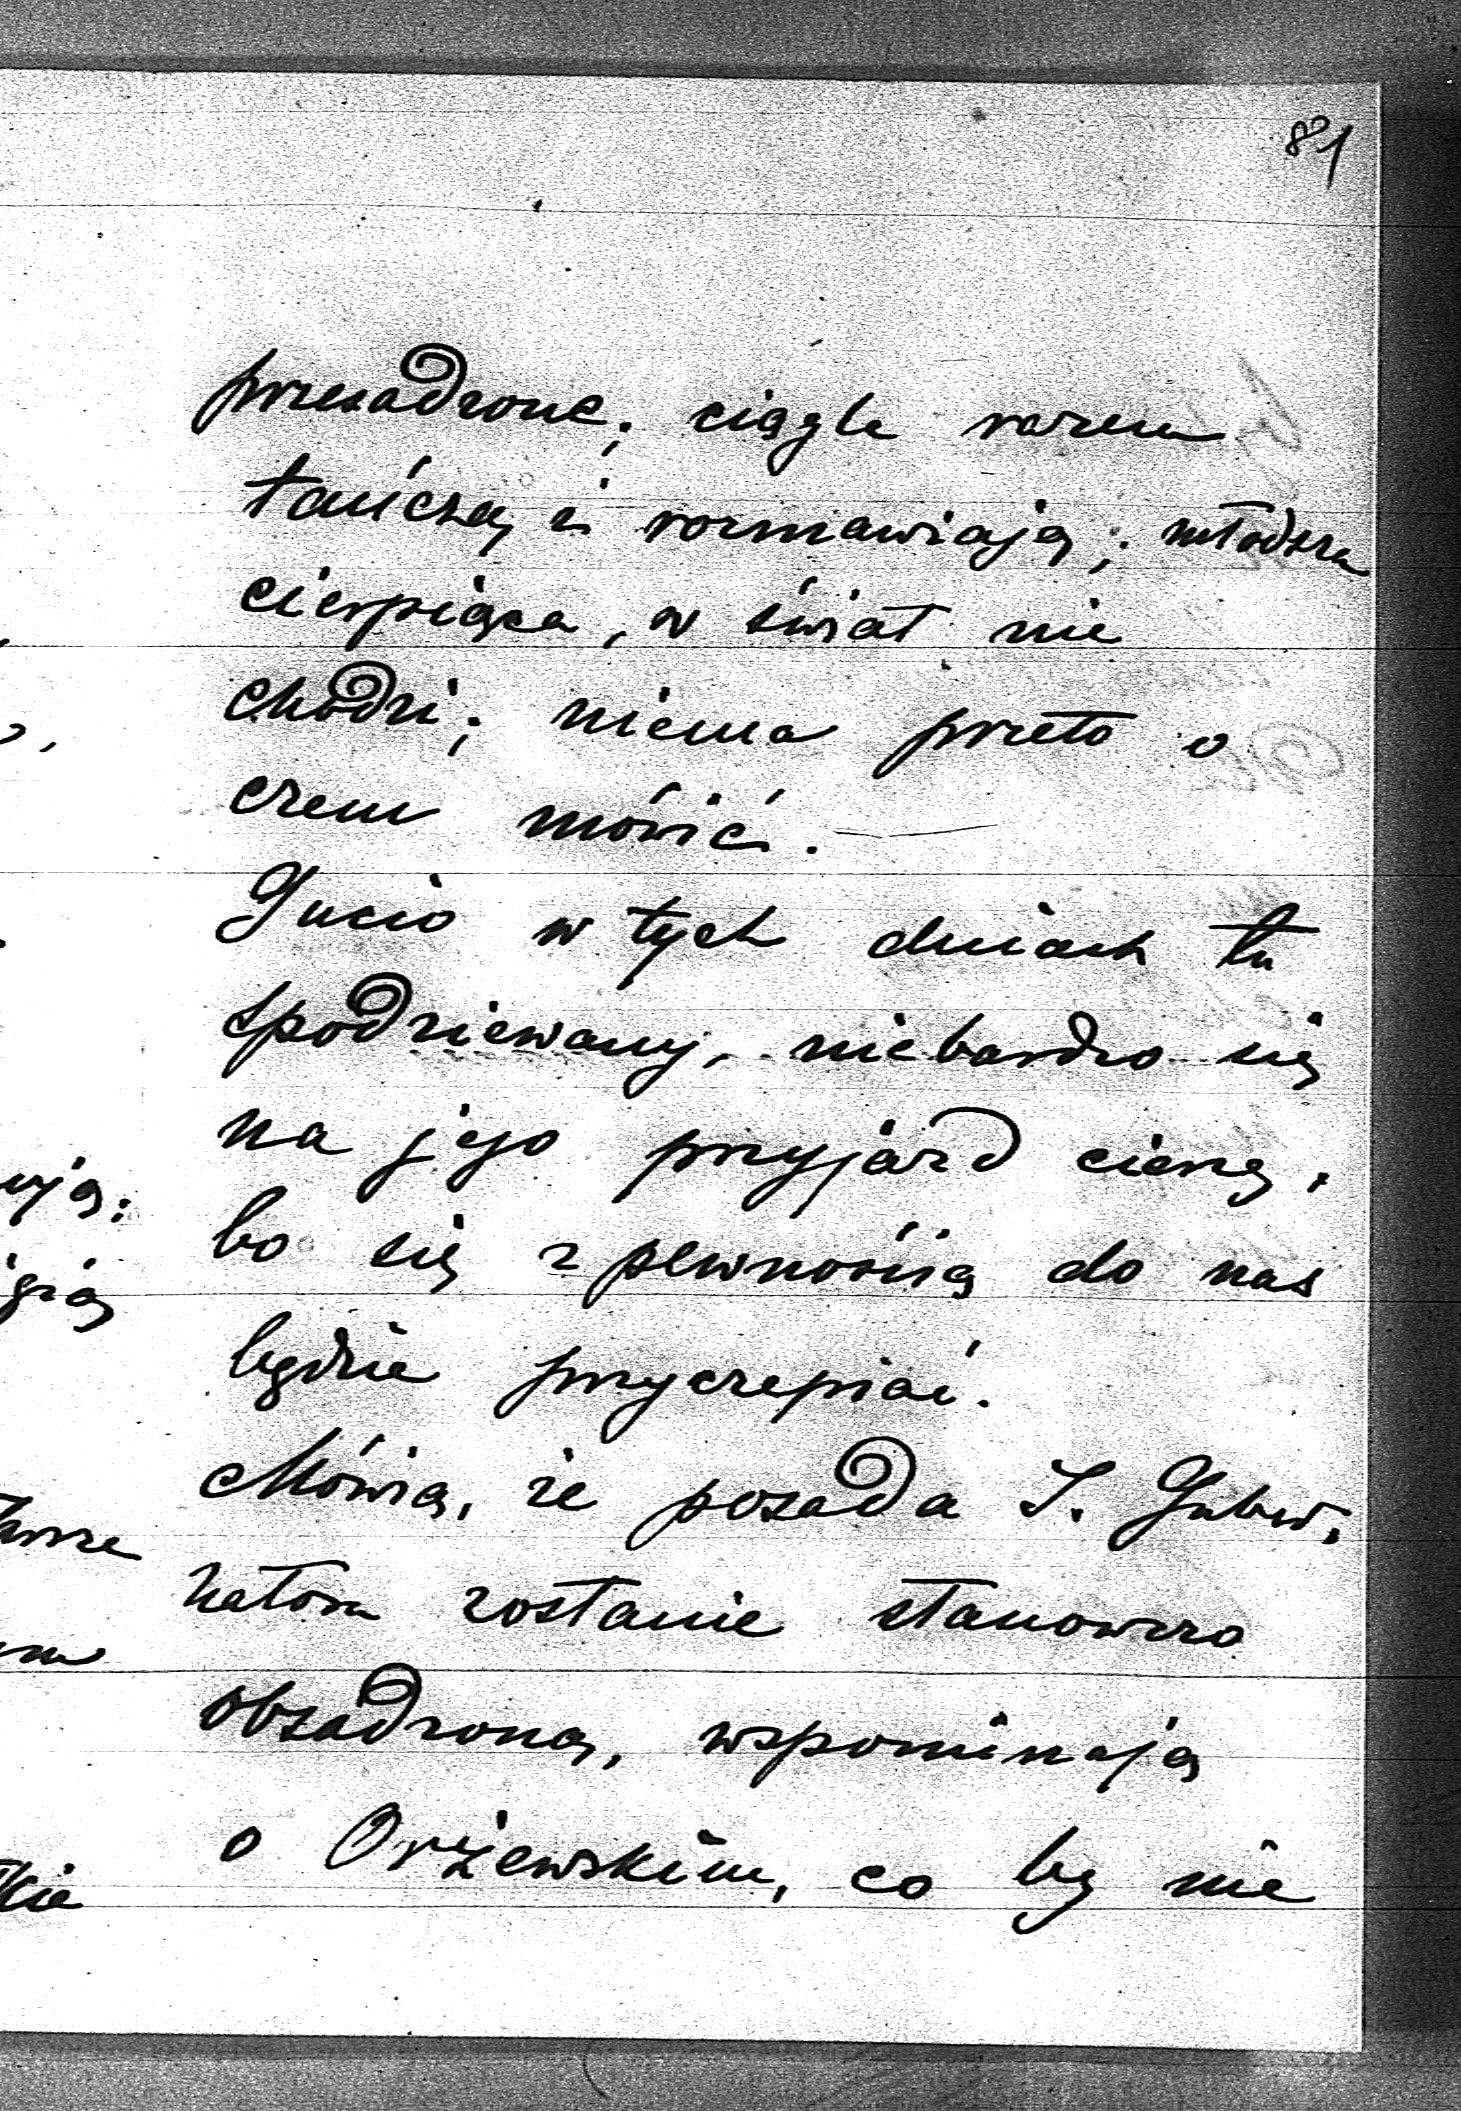 81
przesadzone; ciągle razem
tańczą i rozmawiają; młodsza
cierpiąca, w świat nie
chodzi; niema przeto o
czem mówić.
Gucio w tych dniach tu
spodziewany, niebardzo się
na jego przyjazd cieszę,
bo się z pewnością do nas
będzie przyczepiać.
Mówią, że posada J. Guber.
natora zostanie stanowczo
obsadzoną, wspominają
o Orżewskim, co by nie